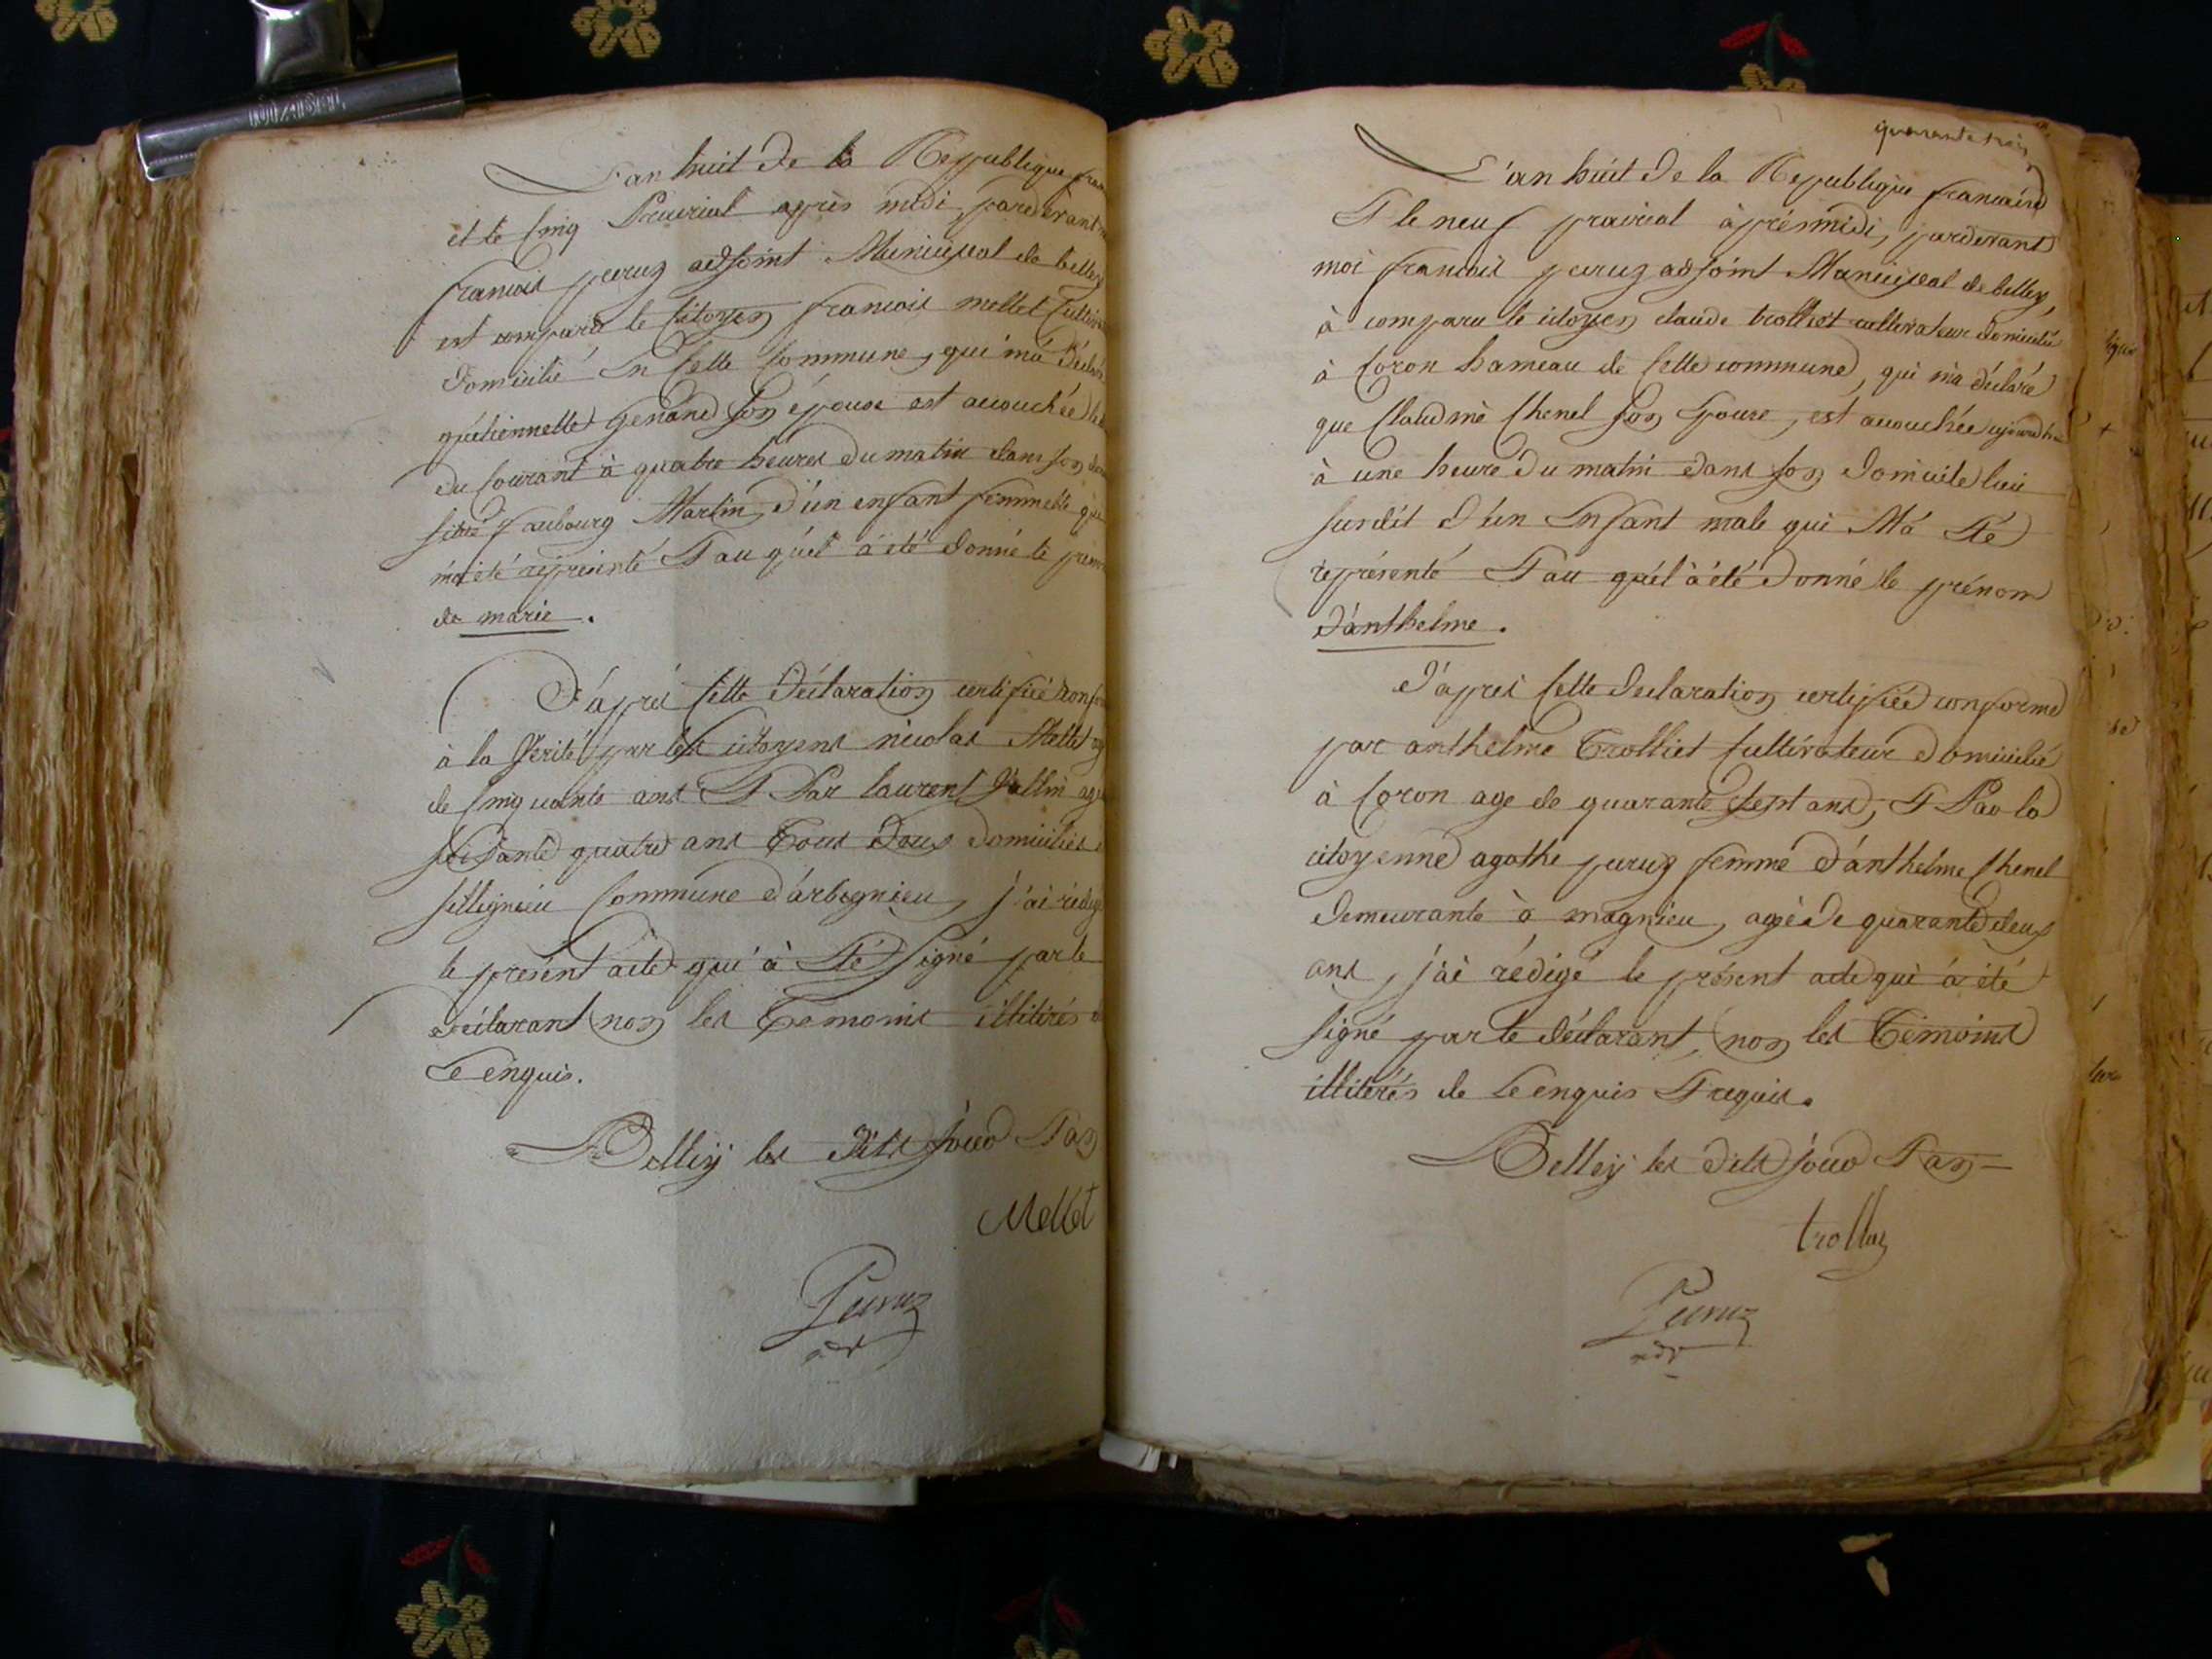 L'an huit de la Republique
et le cinq Prairial après midi, pardevant
francois peruz adjoint Municipal de belley
est comparu le citoyen francois mellet
domicilié en cette commune, qui m'a déclaré
qu'étiennette genand son épouse est accouchée le
du courant à quatre heures du matin dans son
situé faubourg Martin, d'un enfant femmelle qui
m'a été représenté et au quel à été donné le
de marie.
D'après cette déclaration certifiée
à la vérité par les citoyens nicolas Mellet
de cinquante ans et Par laurent
soixante quatre ans tous deux domiciliés
silligneu commune d'arbignieu, j'ai rédigé
le présent acte qui à été signé par le
déclarant non les témoins illitérés
ce enquis.
Belley les dits jour et an
Mellet
Peruz
adj
quarante trois
L'an huit de la Republique francaise
et le neuf prairial après midi, pardevant
moi francois peruz adjoint Municipal de belley,
à comparu le citoyen claude trolliet cultivateur domicilié
à Coron hameau de cette commune, qui m'a déclaré
que Claudine Chenel son épouse, est accouchée
à une heure du matin dans son domicile lieu
susdit d'un enfant male qui M'à été
représenté et au quel à été donné le prénom
d'anthelme.
d'après cette declaration certifiée conforme
par anthelme Trolliet cultivateur domicilié
à Coron age de quarante sept ans, et Par la
citoyenne agathe peruz femme d'anthelme Chenel
demeurante à magnieu, agée de quarante deux
ans, j'ai rédigé le présent acte qui à été
signé par le déclarant, non les témoins
illitérés de ce enquis et requis.
Belley les dits jour et an
Peruz
adj